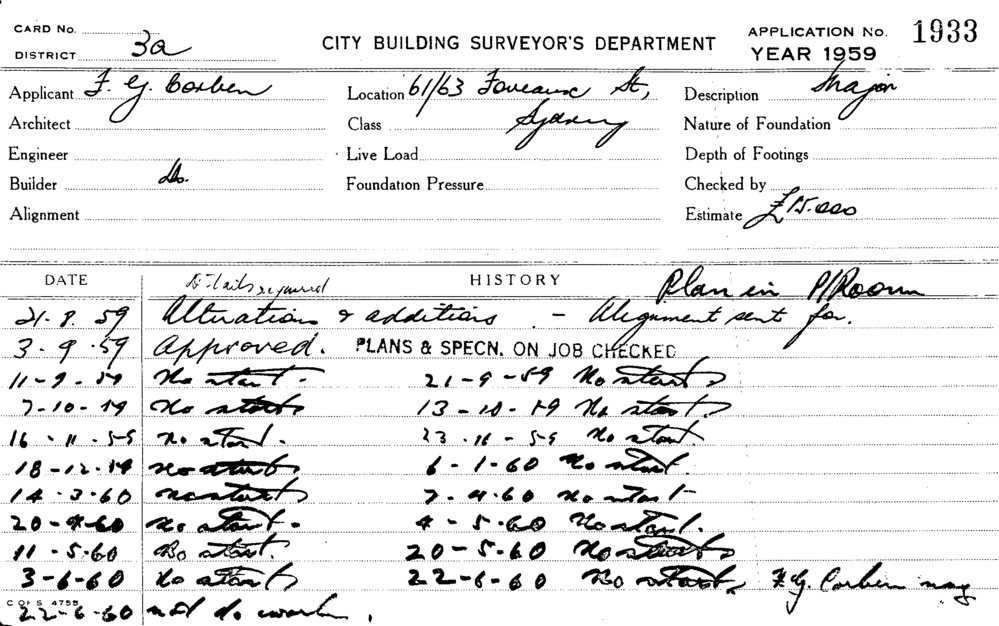 CARD No.
DISTRICT 3a
CITY BUILDING SURVEYOR'S DEPARTMENT
APPLICATION No. 1933
YEAR 1959
Applicant F. G. Corben Location 61/63 Foveaux St, Description Major
Architect Class Sydney Nature of Foundation
Engineer Live Load Depth of Footings
Builder Do. Foundation Pressure Checked by
Alignment Estimate £15.000
DATE Details required HISTORY Plan in P/Room
21. 8. 59 Alterations & additions - Alignment sent for.
3. 9. 59 Approved. PLANS & SPECN. ON JOB CHECKED
11-9-59 No start. 21-9-59 No start.
7-10-59 No start. 13-10-59 No start.
16-11-59 No start. 23.11-59 No start.
18-12-59 No start. 6-1-60 No start.
14.3.60 No start 7.4.60 No start
20-4-60 No start. 4-5-60 No start.
11-5.60 No start. 20-5.60 No start
3-6-60 No start 22-6-60 No start. F.G. Corben may
C OF S 4759
22-6-60 not do work.